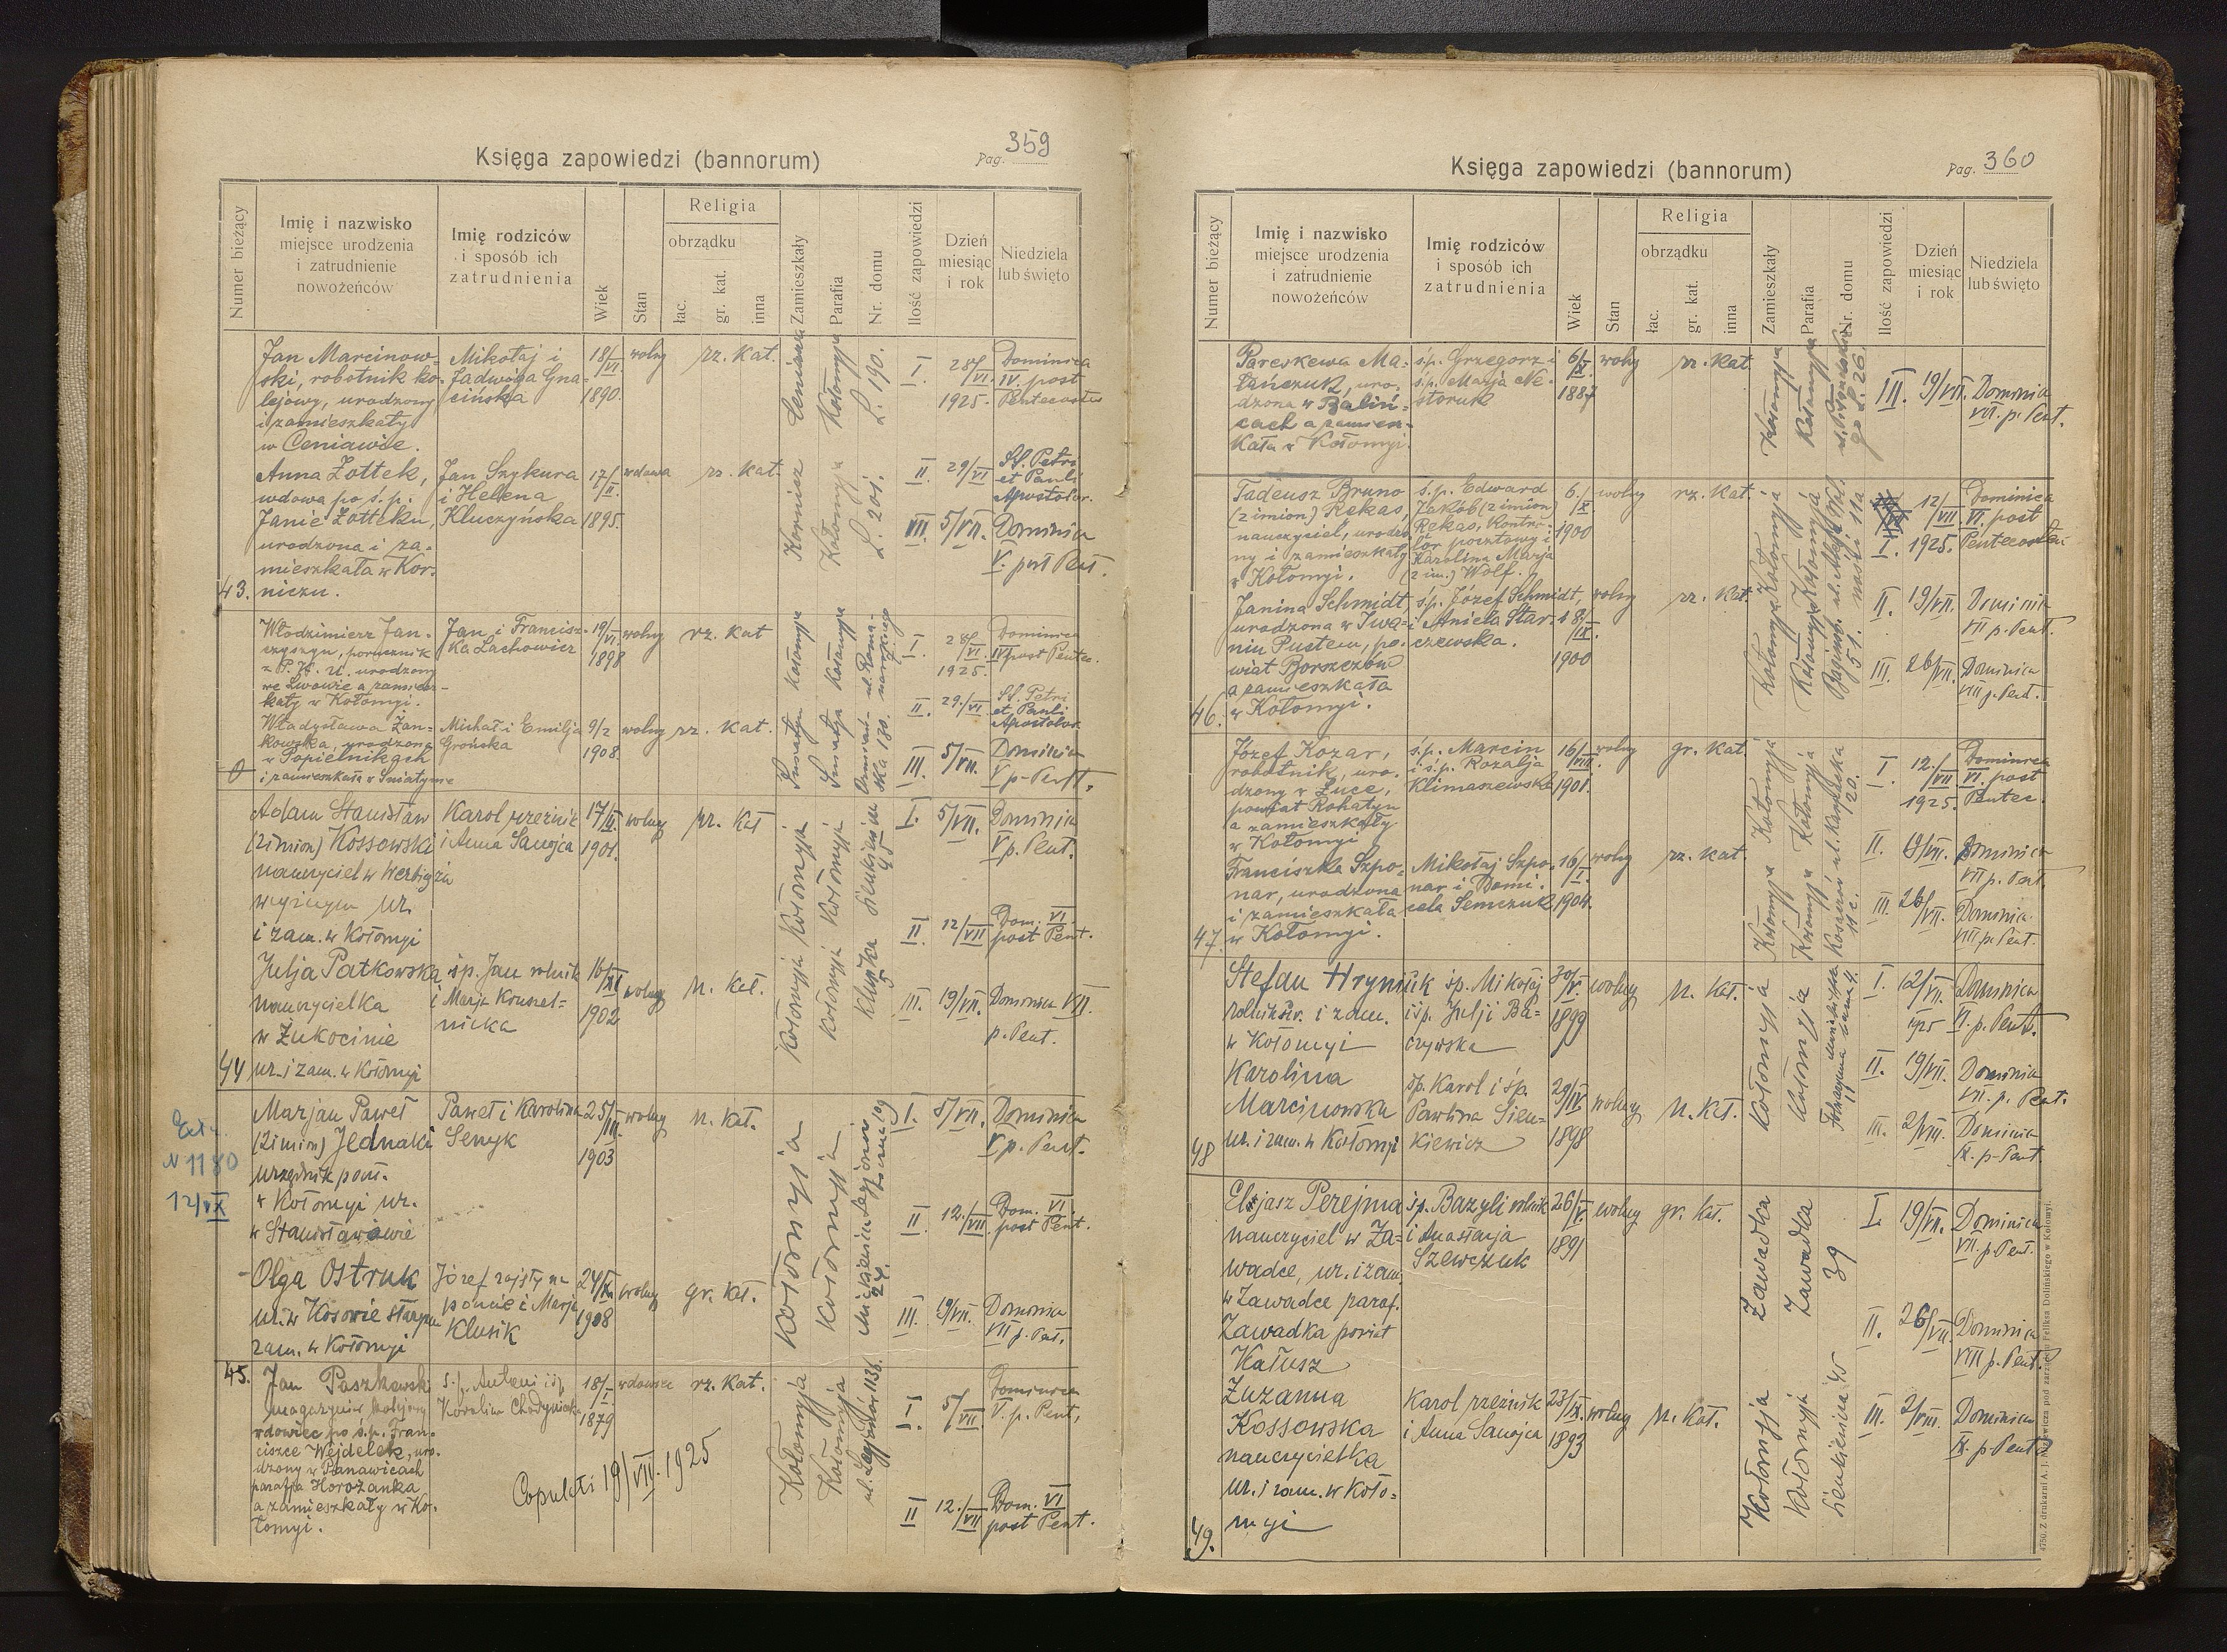 Księga zapowiedzi (bannorum)
Pag. 359
Numer bieżący
Imię i nazwisko
miejsce urodzenia
i zatrudnienie
nowożeńców
Imię rodziców
i sposób ich
zatrudnienia
Wiek
Stan
Religia
obrządku
łac.
gr. kat.
inna
Zamieszkały
Parafia
Nr. domu
Ilość zapowiedzi
Dzień
miesiąc
i rok
Niedziela
lub święto
Jan Marcinow-
ski, robotnik ko-
lejowy, urodzony
i zamieszkały
w Ceniawie.
Mikołaj i
Jadwiga Gna-
cińska
18/VI
1890.
wolny
rz. kat.
Ceniawa
Kołomyja
L. 190.
I.
28/VI.
1925.
Dominica
IV. post
Pentecostes
Anna Żołtek,
wdowa po ś.p.
Janie Żołtku,
urodzona i za-
mieszkała w Kor-
niczu.
43.
Jan Szykura
i Helena
Kluczyńska
17/II.
1895.
wdowa
rz. kat.
Kornicz
Kołomyja
L. 201.
II.
29/VI
SS. Petri
et Pauli
Apostolor.
III.
5/VII.
Dominica
V. post Pent.
Włodzimierz Jan-
czyszyn, porucznik
urodzony
we Lwowie a zamiesz-
kały w Kołomyi.
Jan i Francisz-
ka Lachowicz
19/VI
1898
wolny
rz. kat
Kołomyja
Kołomyja
I.
28/VI.
1925.
Dominica
IV post Pentec.
Władysława Żan-
kowska, urodzona
w Popielnikach
i zamieszkała w Śniatynie
0
Michał i Emilja
Grońska
9/2
1908.
wolny
rz. kat.
Śniatyn
II.
29./VI
SS. Petri
et Pauli
Apostolor.
III.
5/VII.
Dominica
V p. Pent.
Adam Stanisław
(2 imion) Kossowski
nauczyciel w Werbiążu
wyżnym ur.
i zam. w Kołomyi
Karol rzeźnik
i Anna Sanojca
17/
1901.
wolny
rz. kat
Kołomyja
Kołomyja
Sienkiewicza
45
I.
5/VII.
Dominica
V p. Pent.
II
12/VII
Dom. VI.
post Pent.
Julja Patkowska
nauczycielka
w Żukocinie
ur. i zam. w Kołomyi
44
śp. Jan rolnik
i Marja
16/XI
1902
wolny
rz. kat.
Kołomyja
Kołomyja
5
III.
19/VII.
Dominica VII.
p. Pent.
N 1180
12/IX
Marjan Paweł
(2 imion) Jednaki
urzędnik
w Kołomyi ur.
w Stanisławowie
Paweł i Karolina
Senyk
25/III.
1903
wolny
rz. kat.
Kołomyja
Kołomyja
I.
5/VII.
Dominica
V p. Pent.
II
12./VII
Dom. VI.
post Pent.
Olga Ostruk
ur. w Kosowie starym
zam. w Kołomyi
45.
Józef
i Marja
Klusik
24/
1908
wolny
gr. kat.
Mickiewicza
24.
III.
19/VII.
Dominica
VII p. Pent.
Jan Paszkowski
magazynier kolejowy
wdowiec po ś.p. Fran-
ciszce Wejdelek, uro-
dzony w Panawicach
parafja Horożanka
a zamieszkały w Ko-
łomyi.
ś.p. Antoni i śp
Karolina
18/I
1879
wdowiec
rz. kat.
Kołomyja
Kołomyja
ul. Legjonów 113b.
I
5/VII.
Dominica
V. p. Pent.
Copulati 19/VII. 1925
II
12./VII
Dom. VI
post Pent.
Księga zapowiedzi (bannorum)
Pag. 360
Numer bieżący
Imię i nazwisko
miejsce urodzenia
i zatrudnienie
nowożeńców
Imię rodziców
i sposób ich
zatrudnienia
Wiek
Stan
Religia
obrządku
łac.
gr. kat.
inna
Zamieszkały
Parafia
Nr. domu
Ilość zapowiedzi
Dzień
miesiąc
i rok
Niedziela
lub święto
Pareskewa Ma-
łańczuk, uro-
dzona w Baliń-
cach a zamiesz-
kała w Kołomyi.
ś.p. Grzegorz i
ś.p. Marja Ne-
storuk
6/XI.
1887
wolny
rz. kat
Kołomyja
Kołomyja
L. 26.
III.
19/VII.
Dominica
VII. p. Pent.
Tadeusz Bruno
(2 imion) Rekas,
nauczyciel, urodzo-
ny i zamieszkały
w Kołomyi.
ś.p. Edward
Jakób (2 imion)
Rekas, kontro-
lor pocztowy i
Karolina Marja
(2 im.) Wolf.
6./X.
1900
wolny
rz. kat.
Kołomyja
Kołomyja
I.
12/VII
1925.
Dominica
VI. post
Pentecosten
Janina Schmidt,
urodzona w Iwa-
niu Pustem, po-
wiat Borszczów
a zamieszkała
w Kołomyi.
46.
ś.p. Józef Schmidt,
i Aniela Star-
czewska.
18/IX.
1900
wolny
rz. kat.
Kołomyja
Kołomyja
51.
II.
19/VII.
Dominica
VII p. Pent.
III.
26/VII.
Dominica
VIII p. Pent.
Józef Kozar,
robotnik, uro-
dzony w Łuce,
powiat Rohatyn
a zamieszkały
w Kołomyi
ś.p. Marcin
i ś.p. Rozalja
Klimaszewska
16/VIII.
1901.
wolny
gr. kat.
Kołomyja
Kołomyja
20.
I.
12./VII
1925.
Dominica
VI. post
Pentec.
Franciszka Szpo-
nar, urodzona
i zamieszkała
w Kołomyi.
47.
Mikołaj Szpo-
nar i Domi-
cela Semczuk
16/I.
1904.
wolny
rz. kat.
Kołomyja
Kołomyja
II.
19/VII.
Dominica
VII p. Pent.
III.
26/VII.
Dominica
VIII p. Pent.
Stefan Hryniuk
rolnik ur. i zam.
w Kołomyi
śp. Mikołaj
i śp. Julji Ba-
czywska
30/V.
1899
wolny
rz. kat.
Kołomyja
Kołomyja
I.
12/VII.
1925
Dominica
VI. p. Pent.
Karolina
Marcinowska
ur. i zam. w Kołomyi
48
śp. Karol i śp.
Pawlina Sien-
kiewicz
29/IV
1898
wolny
rz. kat.
II.
19/VII.
Dominica
VII. p. Pent.
III.
2/VIII.
Dominica
IX. p. Pent.
Eljasz Perejma
nauczyciel w Za-
wadce, ur. i zam.
w Zawadce paraf.
Zawadka powiat
Kałusz
śp. Bazyli rolnik
i Anastazja
Szewczuk
26/V.
1891
wolny
gr. kat.
Zawadka
Zawadka
39
I.
19/VII.
Dominica
VII. p. Pent.
II.
26/VII
Dominica
VIII p. Pent.
Zuzanna
Kossowska
nauczycielka
ur. i zam. w Koło-
myi
49.
Karol rzeźnik
i Anna Sanojca
23/IX.
1893
wolny
rz. kat.
Kołomyja
Kołomyja
Sienkiewicza 45
III.
2/VIII.
Dominica
IX. p. Pent.